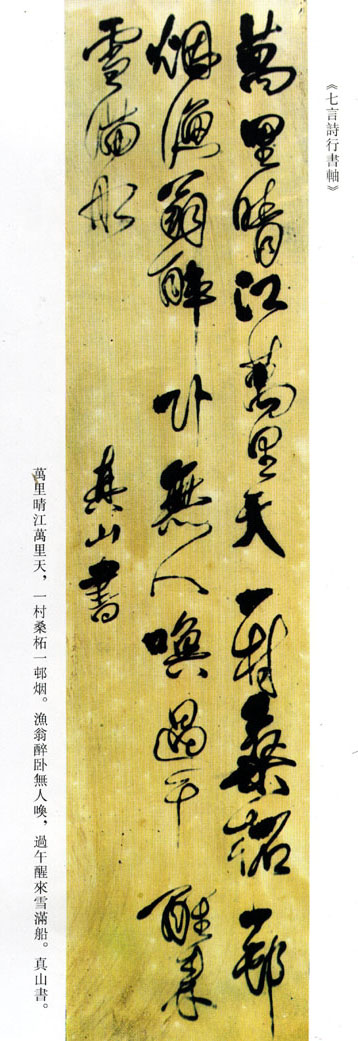 《七言詩行書軸》
萬里晴江萬里天一村桑柘一邨
烟漁翁醉卧無人喚過午醒來
雪滿船
真山書
萬里晴江萬里天，一村桑柘一邨烟。漁翁醉卧無人喚，過午醒來雪滿船。真山書。